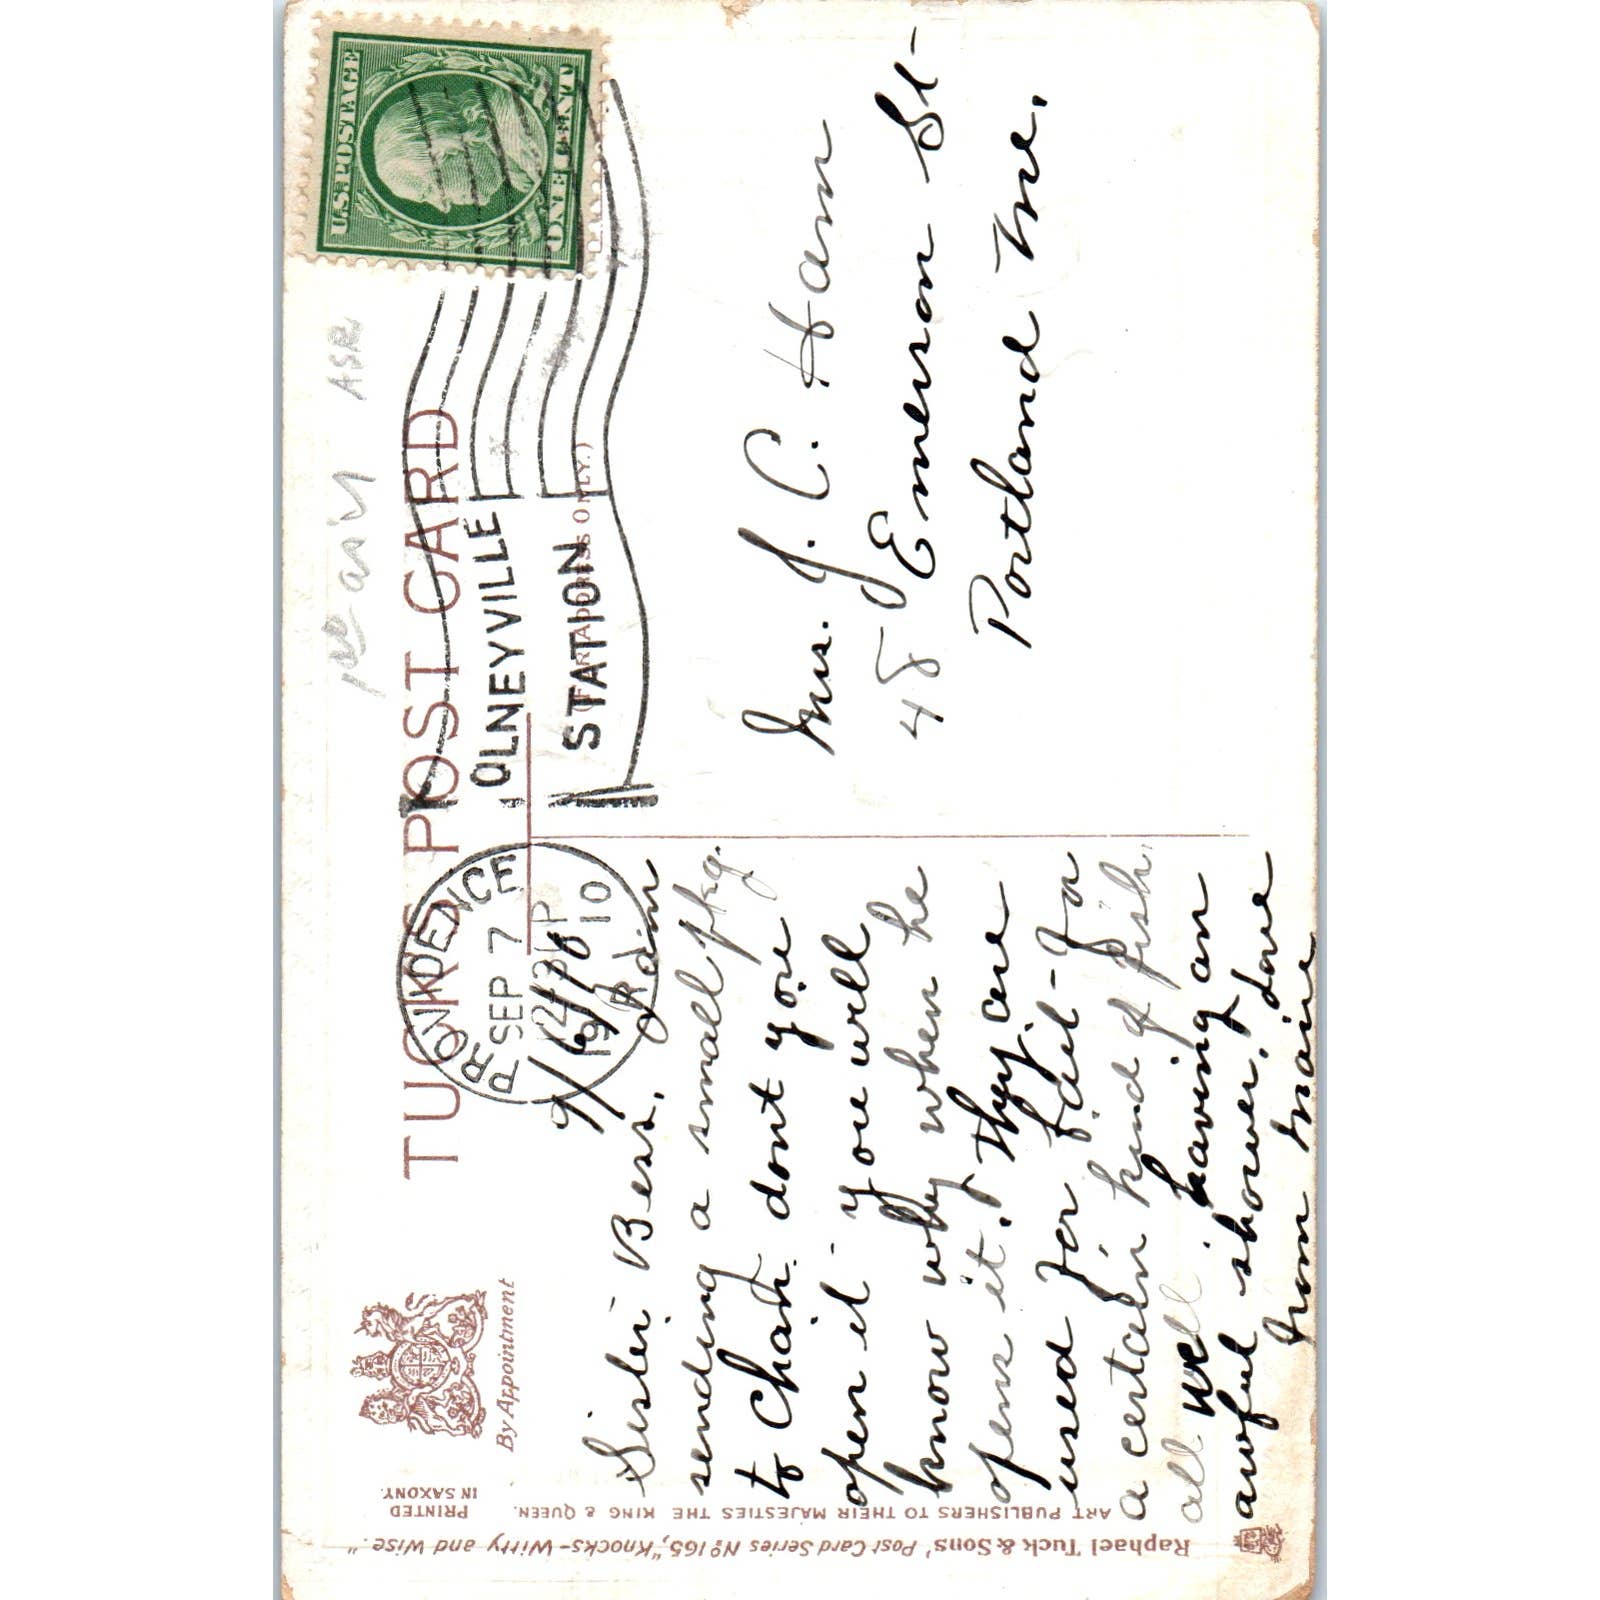 U.S. POSTAGE
ONE CENT
1st air ASR
TUCK'S POST CARD
(FOR ADDRESS ONLY.)
PROVIDENCE
SEP 7
1230P
1910
R.I.
OLNEYVILLE
STATION
By Appointment
PRINTED
IN SAXONY.
ART PUBLISHERS TO THEIR MAJESTIES THE KING & QUEEN.
Raphael Tuck & Sons' Post Card Series Nº 165, "Knocks-Witty and Wise."
9/6/10
Sister Bess. I am
sending a small pkg.
to Chas. dont you
open it - you will
know why when he
opens it. They are
used for bait - for
a certain kind of fish,
all well having an
awful shower. Love
from Marie
Mrs. J. C. Ham
48 Emerson St-
Portland Me.